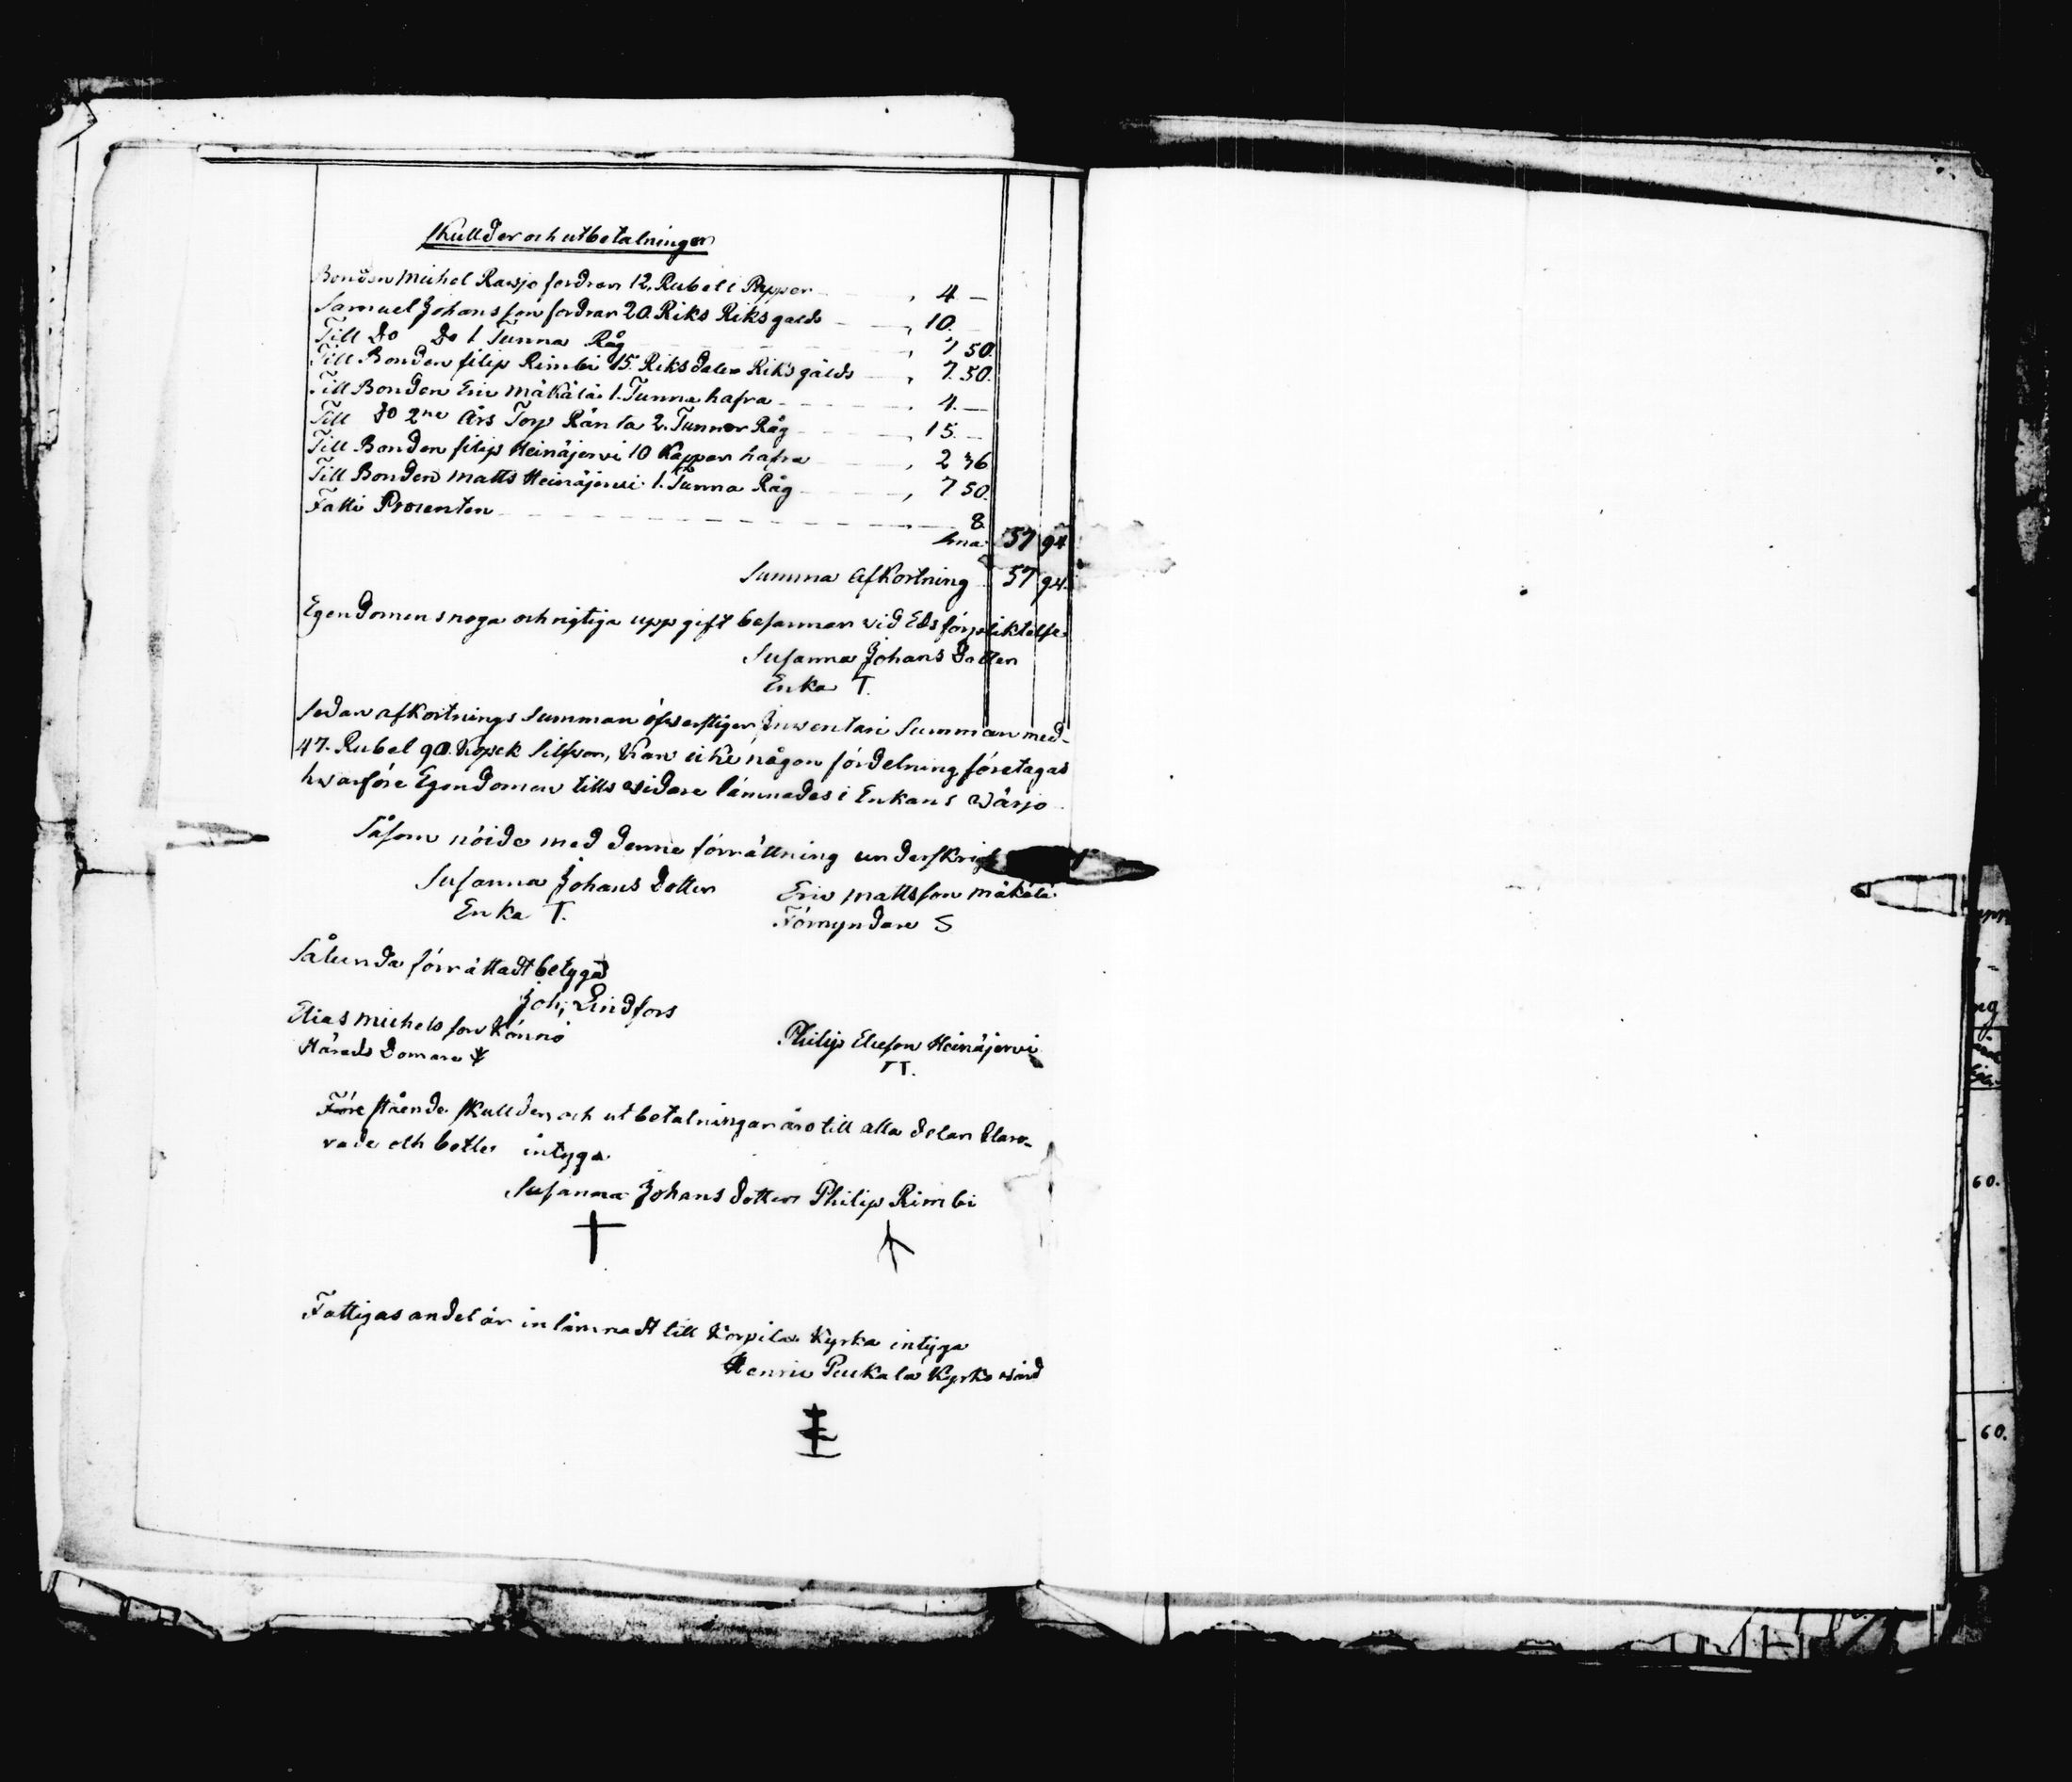 Skullder och utbetalningar
Bonden Michel Rawsjo fordran 12. Rubel i Papper , 4 —
Samuel Johansson fordrar 20. Riks Riksgälds , 10. —
Till Do Do 1 Tunna Råg , 7 50.
Till Bonden filip Rimbi 15. Riksdaler Riksgälds , 7. 50.
Till Bonden Eric Mäkälä 1. Tunna hafra , 4. —
Till Do 2ne Års Torp Ränta 2. Tunnor Råg , 15. —
Till Bonden filip Heinäjervi 10 Kappar hafra , 2 36
Till Bonden Matts Heinäjervi 1. Tunna Råg , 7 50.
Fatti Procenten , — 8.
Sma 57 94
Summa Afkortning 57 94.
Egendomens noga och rigtiga uppgift besannar vid Eds förpliktelse
Susanna Johans Dotter
Enka T.
Sedan afkortnings Summan öfverstiger Inventari Summan med
47. Rubel 90. Kopek Silfver, kan icke någon fördelning företagas
hvarföre Egendomen tills vidare lämnades i Enkans wärjo
Såsom nöjda med denna förrättning underskrif
Susanna Johans Dotter Eric Mattsson Mäkälä
Enka T. Förmyndare S
Sålunda förrättadt betyga
Joh, Lindfors
Elias Michelsson Könnö Philip Eliesson Heinäjervi
Härads Domare TT.
Före stående skullder och utbetalningar äro till alla delar klare-
rade och betlte intyga
Susanna Johans dotter Philip Rimbi
Fattigas andel är inlämnadt till Korpila Kyrka intyga
Henric Peukala Kyrko wärd
60.
60.